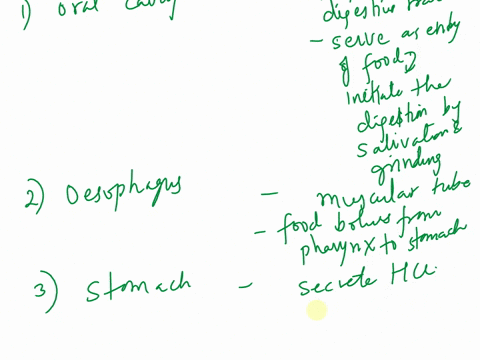 1) oral cavity
digestive
- serve as entry
of food &
initiate the
digestion by
salivation &
grinding
2) Oesophagus - muscular tube
- food bolus from
pharynx to stomach
3) Stomach - secrete HCl